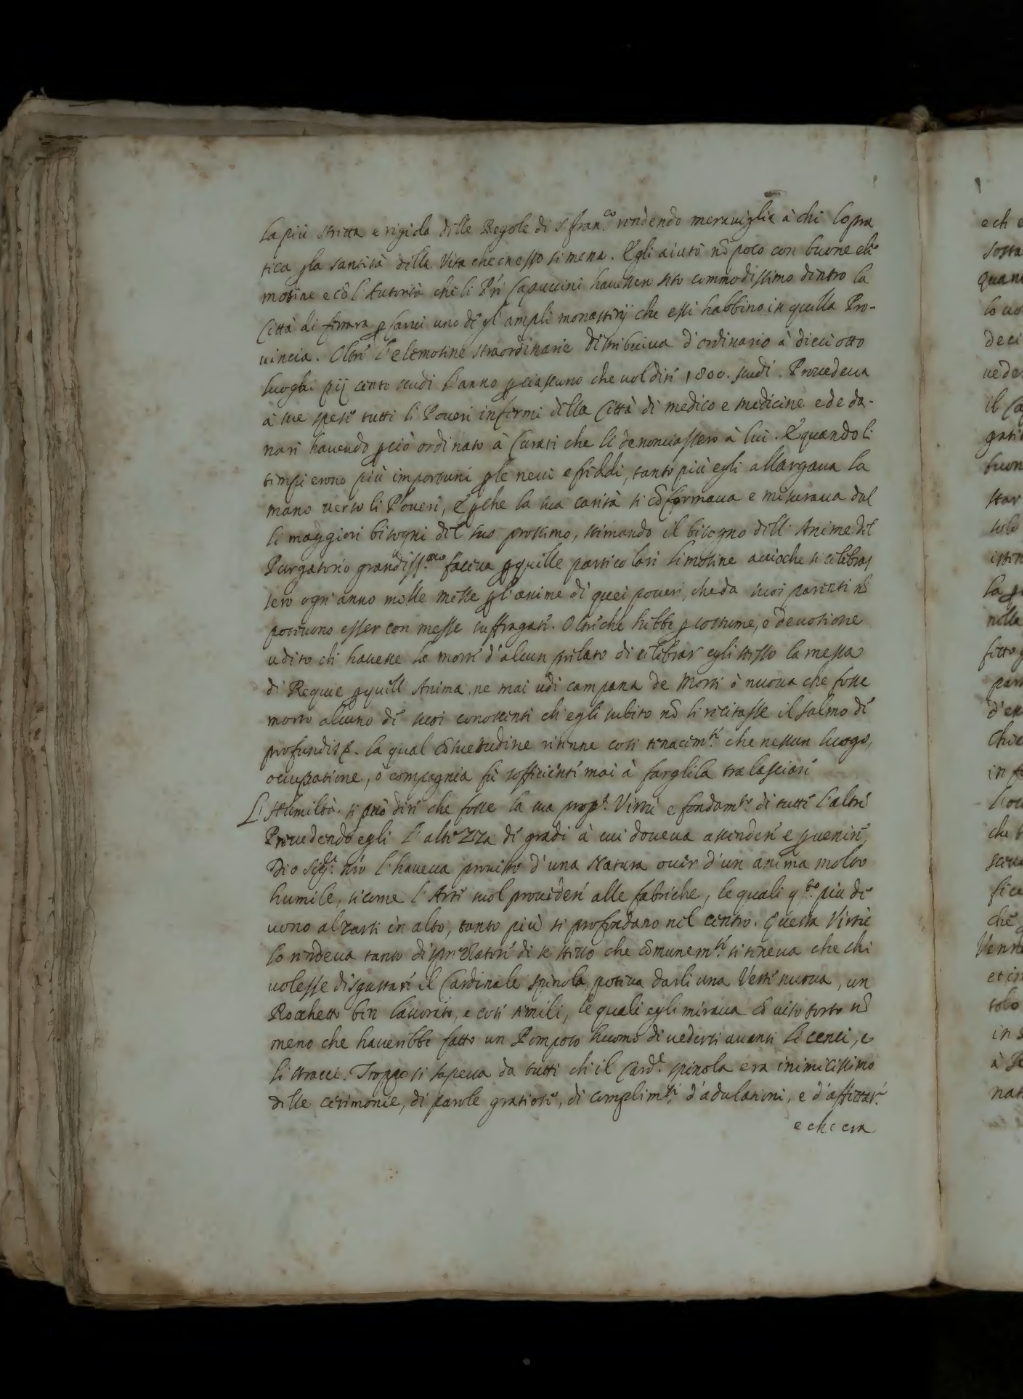 la più stretta e rigida delle Regole di S. Fran.co rendendo meraviglia à chi la pra
tica p la santità della Vita che in esso si mena. Egli aiutò nõ poco con buone ele
mosine e cõ l'Autorità che li Pri Capuccini havessero sito commodissimo dentro la
Città di Ferrara p farvi uno de gl'ampli monasterij che essi habbino in quella Pro-
vincia. Oltre l'elemosine straordinarie distribuiva d'ordinario à dieciotto
luoghi pij cento scudi l'anno p ciascuno che vol dire 1800. scudi. Provedeva
a sue spese tutti li Poveri infermi della Città di medico e medicine e de da-
nari havendo p ciò ordinato à Curati che li denonciassero à lui. E quando li
tempi erono più importuni p le nevi e freddi, tanto più egli allargava la
mano verso li Poveri, E p che la sua carità si cõformava e misurava dal
li maggiori bisogni del suo prossimo, stimando il bisogno dell'Anime del
Purgatorio grandiss.mo faceva p quelle particolari limosine accioche si celebras
sero ogn'anno molte messe p l'anime di quei poveri, che da suoi parenti nõ
potevono esser con messe suffragati. Oltre che hebbe p costume, o devotione
udito che havesse la morte d'alcun prelato di celebrar egli stesso la messa
di Requie p quell'Anima, ne mai udì campana de Morti ò nuova che fosse
morto alcuno de suoi conoscenti ch'egli subito nõ li recitasse il salmo de
profundis &. la qual cõsuetudine ritenne così tenacim.te che nessun luogo,
occupatione, o compagnia fù sufficiente mai à fargliela tralasciare
L'Humiltà si può dire che fosse la sua prop.a Virtù e fondam.to di tutte l'altre
Provedendo egli l'altezza de gradi à cui doveva ascendere e pvenire,
Dio Sig.r nro l'haveva provisto d'una Natura over d'un anima molto
humile, sicome l'Arte suol provedere alle fabriche, le quali q.to più de
vono alzarsi in alto, tanto più si profondano nel centro. Questa Virtù
lo rendeva tanto disprezzatore di se stesso che cõmunem.te si teneva che chi
volesse disgustare il Cardinale Spinola poteva darli una Veste nuova, un
Rocchetto ben lavorato, e cose simili, le quali egli mirava cõ viso torto nõ
meno che haverebbe fatto un Pomposo huomo di vedersi avanti le cenci, e
li stracci. Troppo si sapeva da tutti che il Card.l Spinola era inimicissimo
delle cerimonie, di parole gratiose, di complim.ti d'adulationi, e d'affettat.e
e che era